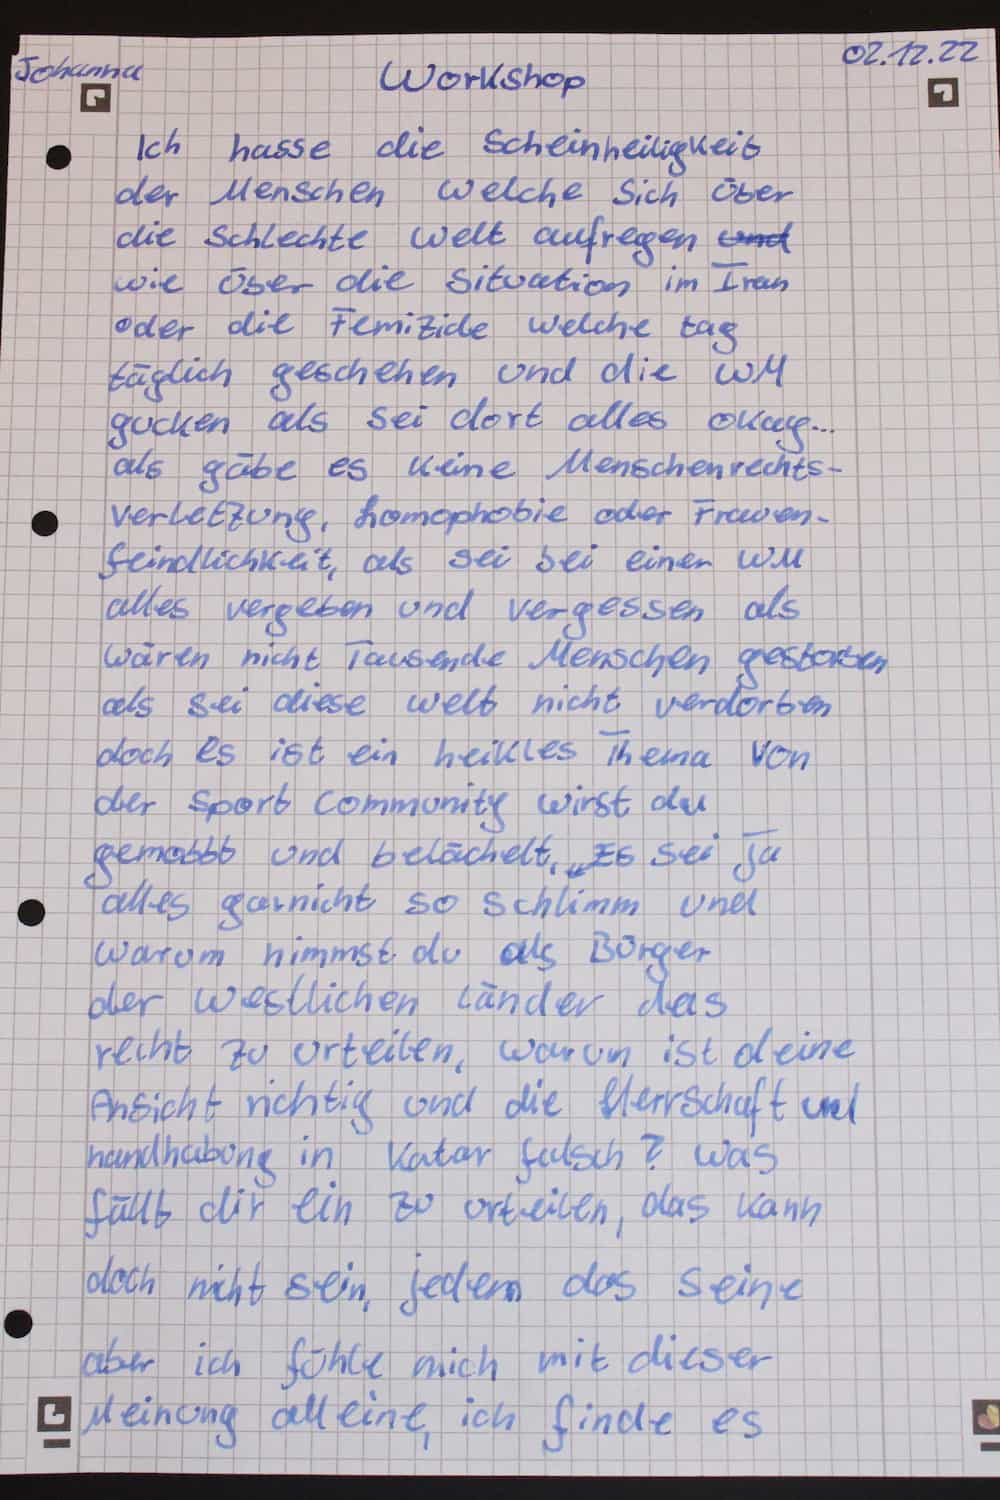 Johanna
Workshop
02.12.22
Ich hasse die Scheinheiligkeit
der Menschen welche sich über
die schlechte Welt aufregen und
wie über die Situation im Iran
oder die Femizide welche tag
täglich geschehen und die WM
gucken als sei dort alles okay...
als gäbe es keine Menschenrechts-
verletzung, homophobie oder Frauen-
feindlichkeit, als sei bei einer WM
alles vergeben und vergessen als
wären nicht Tausende Menschen gestorben
als sei diese welt nicht verdorben
doch es ist ein heikles Thema von
der Sport Community wirst du
gemobbt und belächelt, „Es sei ja
alles garnicht so schlimm und
warum nimmst du als Bürger
der westlichen Länder das
recht zu urteilen, warum ist deine
Ansicht richtig und die Herrschaft und
handhabung in Katar falsch? was
fällt dir ein zu urteilen, das kann
doch nicht sein, jedem das seine
aber ich fühle mich mit dieser
Meinung alleine, ich finde es